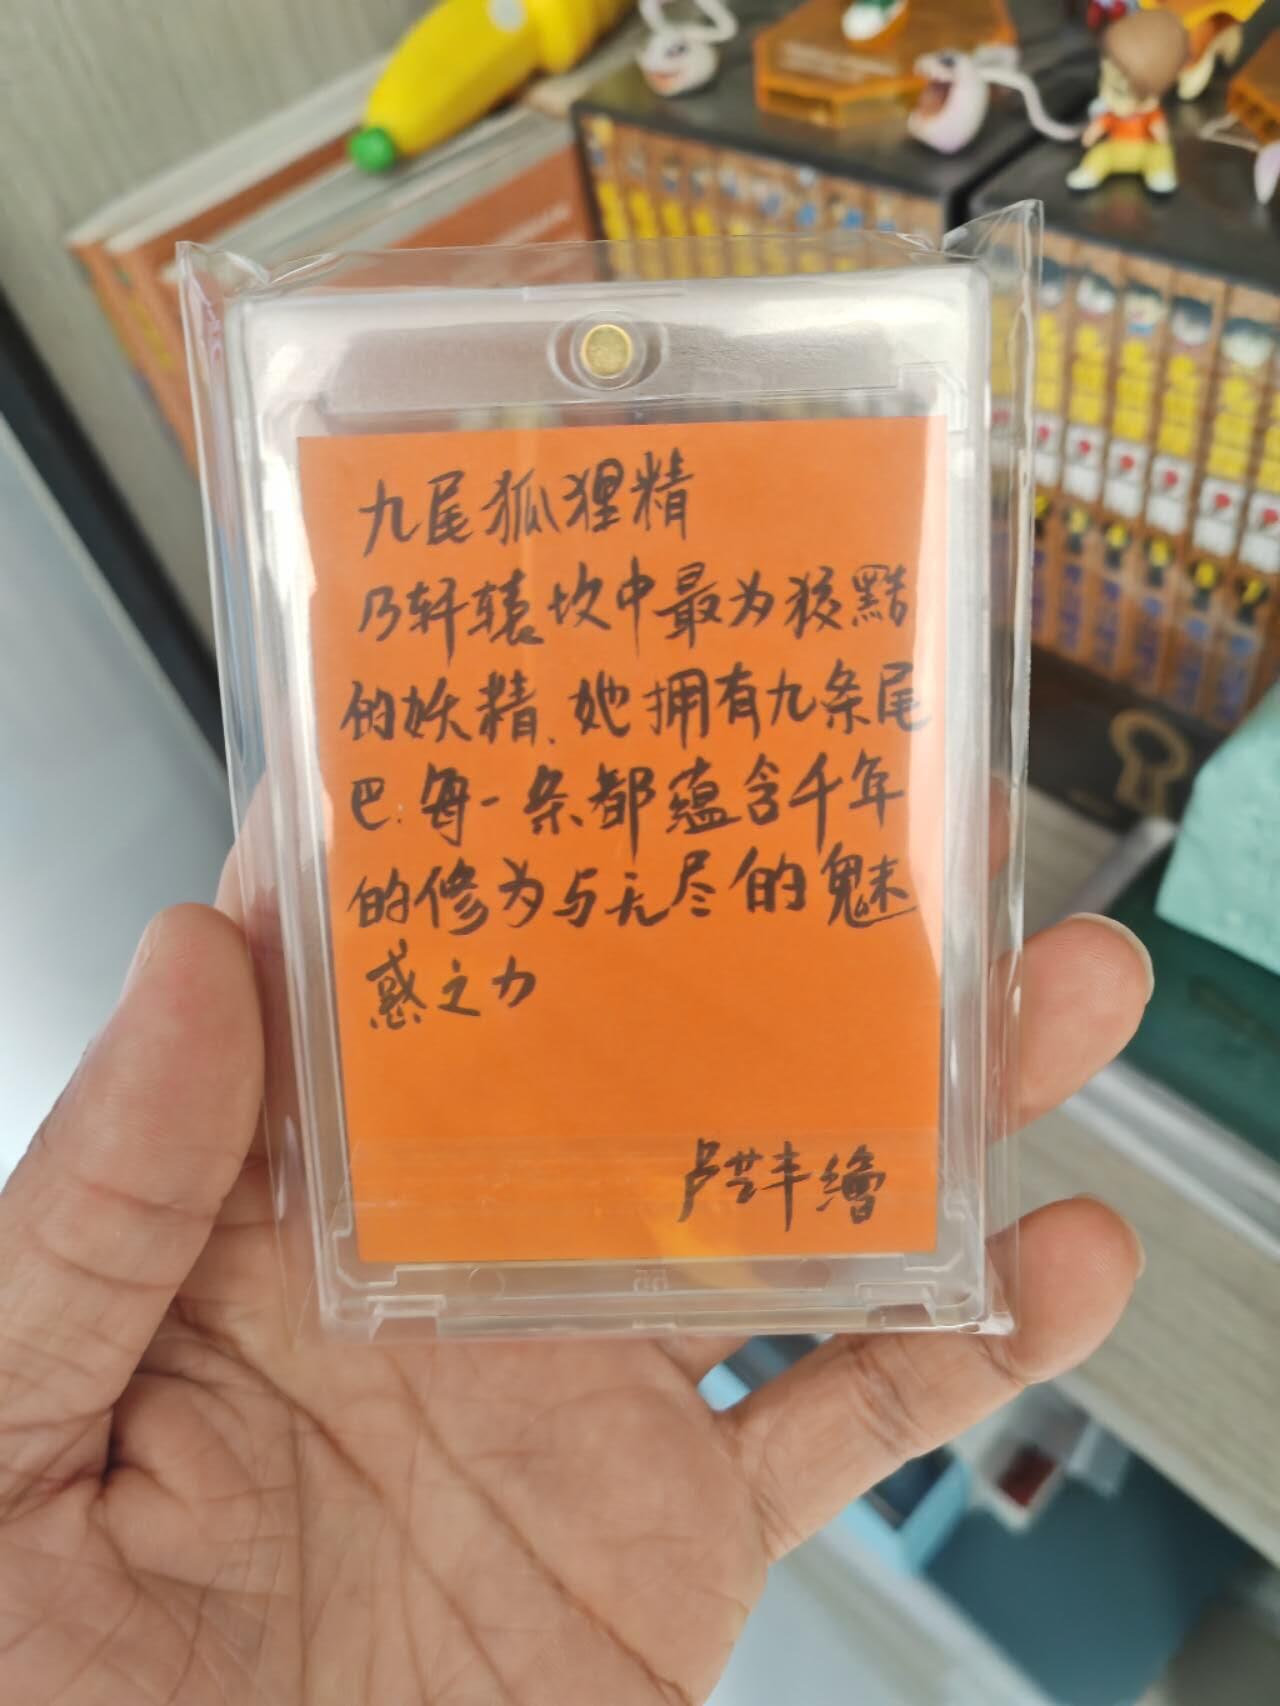 九尾狐狸精
乃轩辕坟中最为狡黠
的妖精、她拥有九条尾
巴.每一条都蕴含千年
的修为与无尽的魅
惑之力
卢芸丰繪